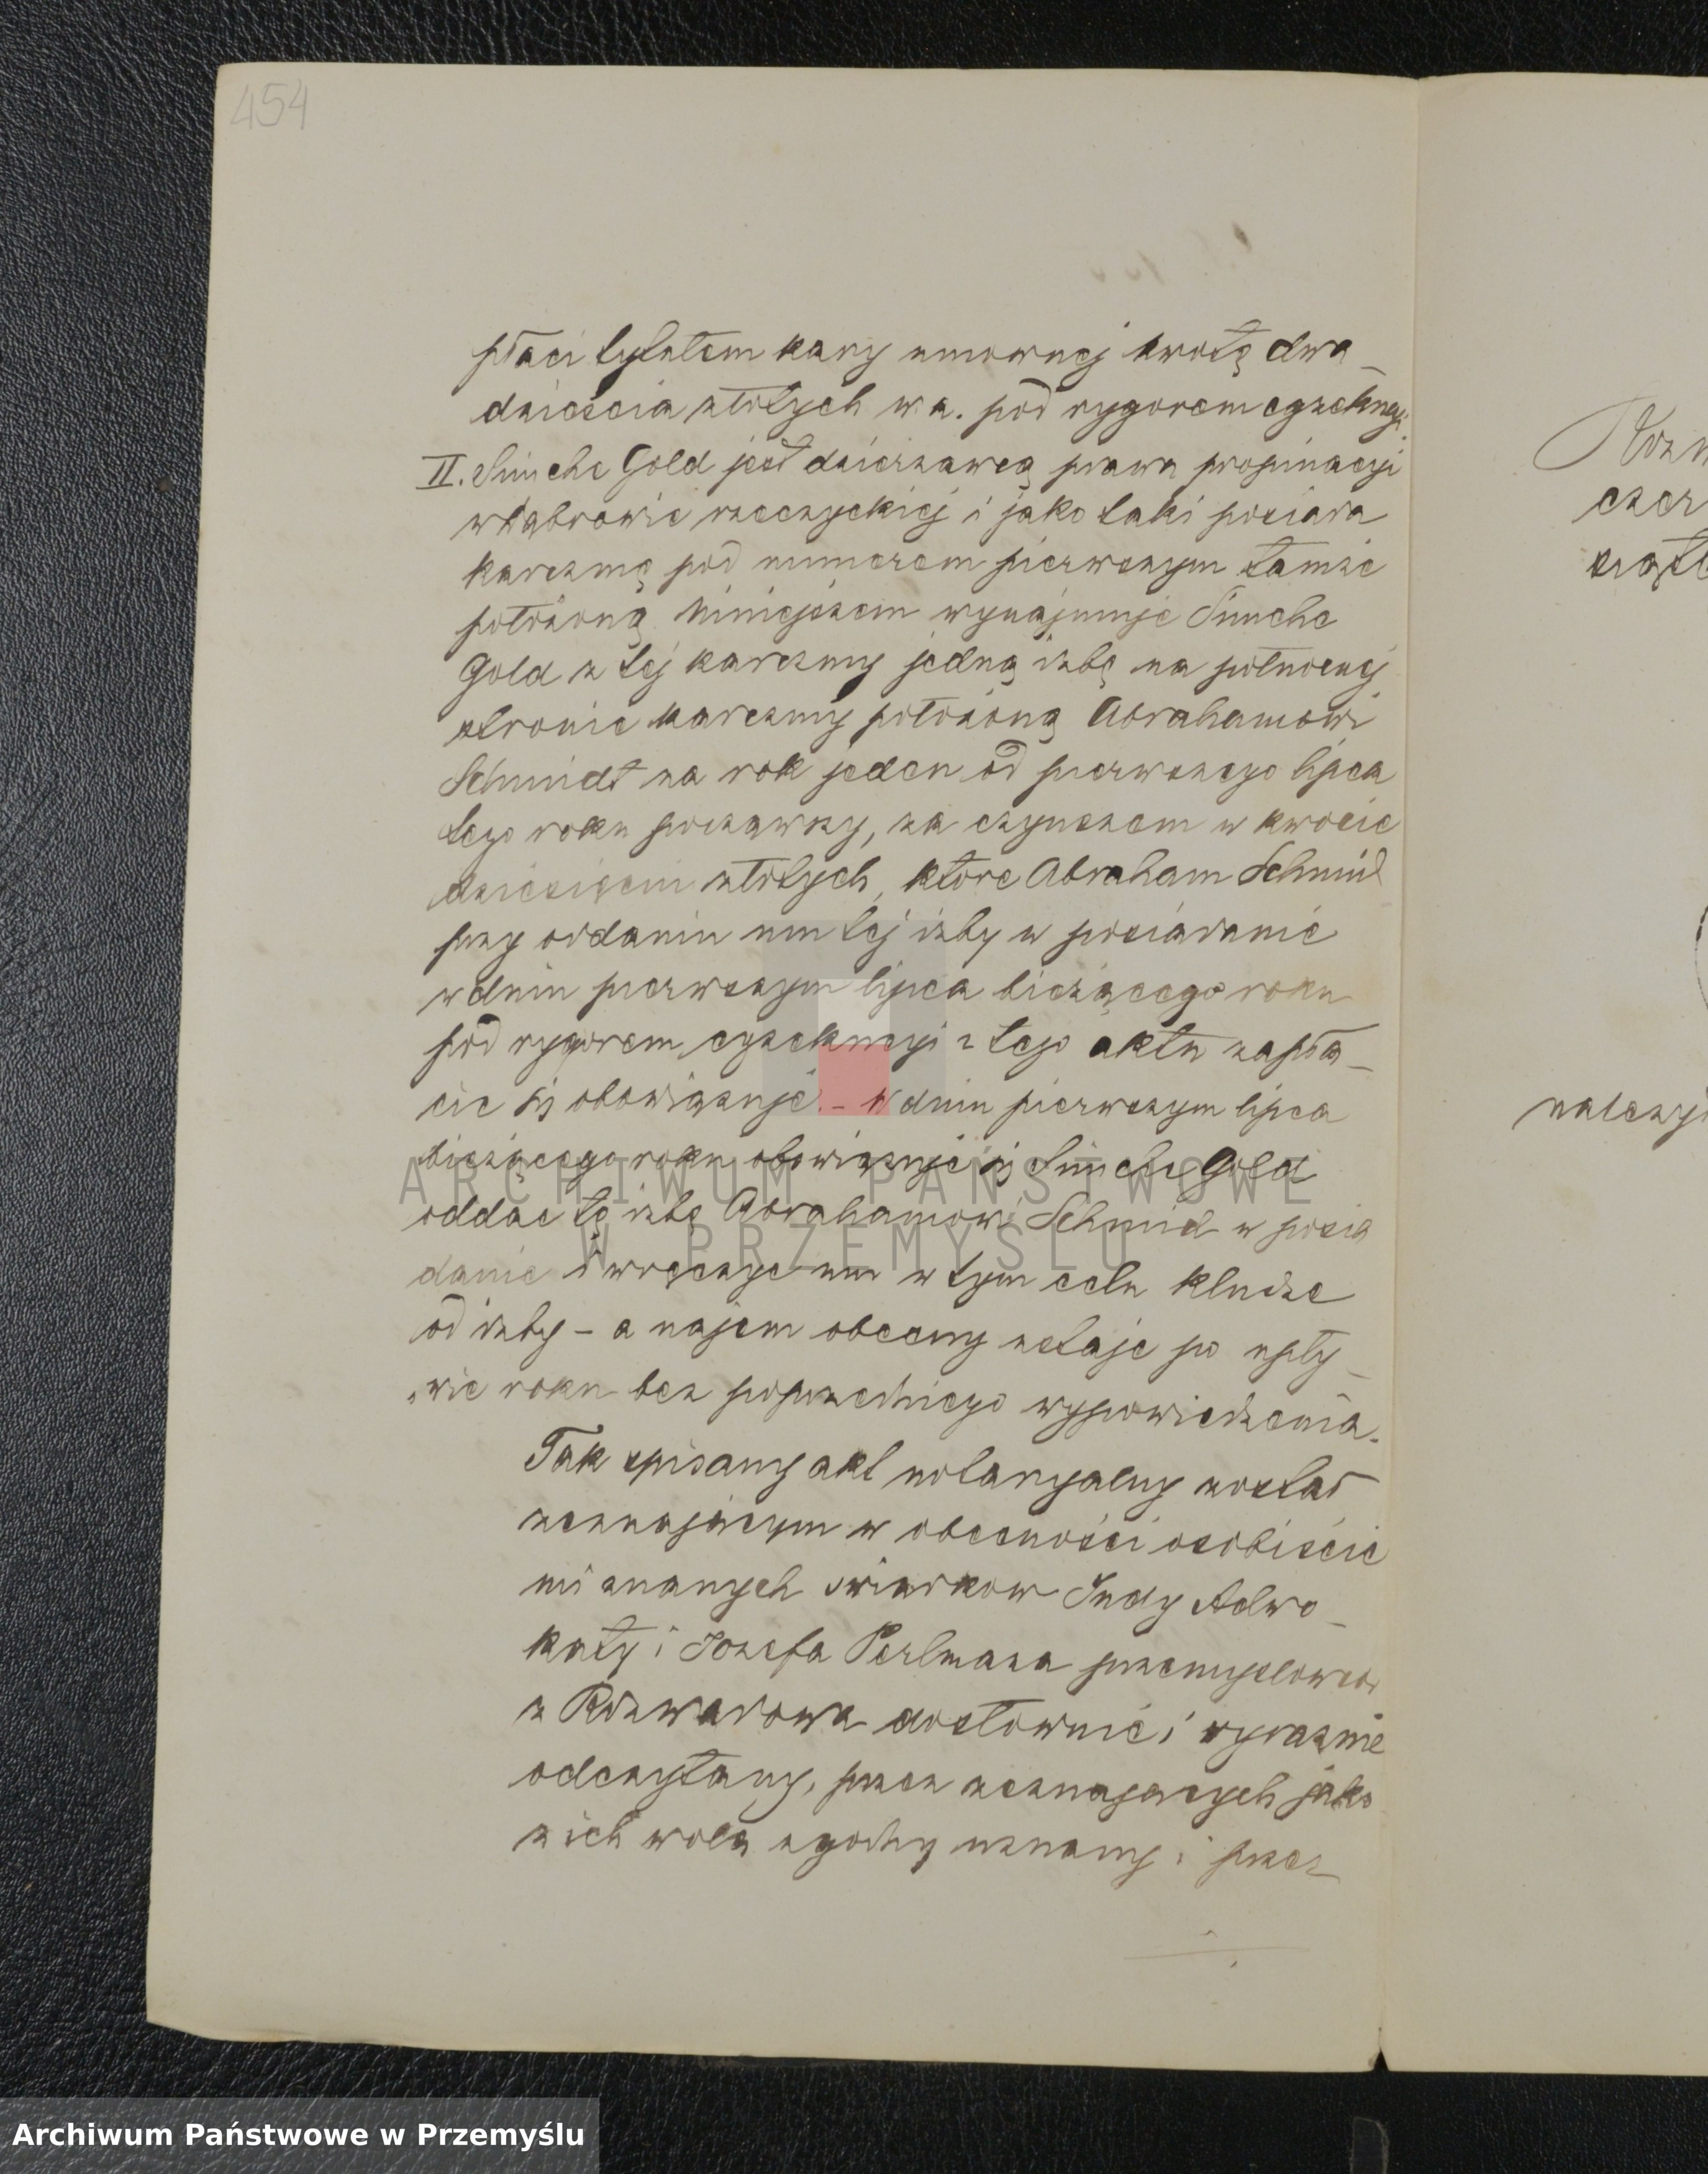 454
płaci tytułem kary umownej kwotę dwa_
dzieścia złotych w.a. pod rygorem egzekucyi.
II. Simche Gold jest dzierżawcą prawa propinacyi
w Dąbrowie rzeczyckiej i jako taki posiada
karczmę pod numerem pierwszym tamże
położoną. Niniejszem wynajmuje Simche
Gold z tej karczmy jedną izbę na północnej
stronie karczmy położoną Abrahamowi
Schmidt na rok jeden od pierwszego lipca
tego roku począwszy, za czynszem w kwocie
dziesięciu złotych, które Abraham Schmid
przy oddaniu mu tej izby w posiadanie
w dniu pierwszym lipca bieżącego roku
pod rygorem egzekucyi z tego aktu zapła_
cić się obowiązuje. – W dniu pierwszym lipca
bieżącego roku obowiązuje się Simche Gold
oddać tę izbę Abrahamowi Schmid w posia
danie i wręczyć mu w tym celu klucze
od izby – a najem obecny ustaje po upły_
wie roku bez poprzedniego wypowiedzenia.
Tak spisany akt notaryalny został
zeznającym w obecności osobiście
mi znanych świadków Judy Adwo_
katy i Józefa Perlmana przemysłowców
z Rozwadowa dosłownie i wyraźnie
odczytany, przez zeznających jako
z ich wolą zgodny uznany i przez
czer
należy
ARCHIWUM PAŃSTWOWE
W PRZEMYŚLU
Archiwum Państwowe w Przemyślu